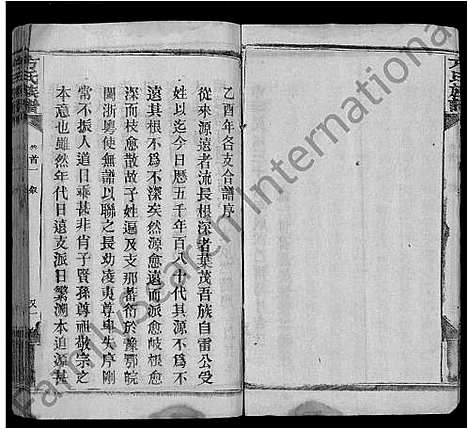 乙酉年各支合譜序
從來源遠者流長根深者葉茂吾族自雷公受
姓以迄今日歷五千年百八十代其源不為不
遠其根不為不深矣然源愈遠而派愈岐根愈
深而枝愈散故子姓遍及支那蕃衍於豫鄂皖
閩浙粵使無譜以聯之長幼凌夷尊卑失序剛
常不振人道日乖甚非肖子賢孫尊祖敬宗之
本意也雖然年代日遠支派日繁溯本追源甚
方氏族譜
首一
叙
方氏族譜
FamilySearch International